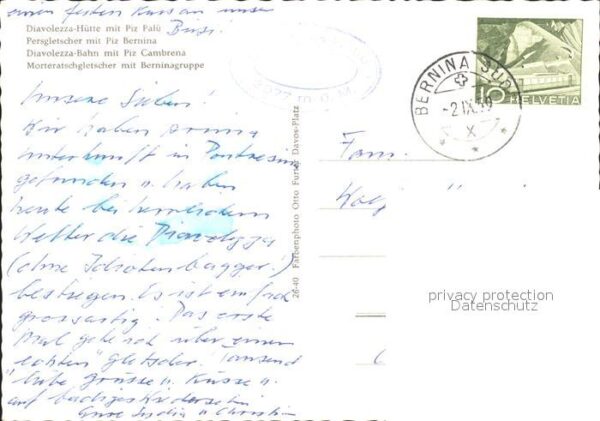 einen festen Kuss an unse
Buss.
Diavolezza-Hütte mit Piz Palü
Persgletscher mit Piz Bernina
Diavolezza-Bahn mit Piz Cambrena
Morteratschgletscher mit Berninagruppe
Unsere Lieben!
Wir haben prima
Unterkunft in Pontresina
gefunden u. haben
heute bei herrlichem
Wetter die Diavolezza
(ohne Idiotenbagger!)
bestiegen. Es ist einfach
grossartig. Das erste
Mal gehe ich über einen
echten Gletscher. Tausend
liebe Grüsse u. Küsse u.
auf baldiges Wiedersehen
Eure u Christi
26-40 Farbenphoto Otto Furter Davos-Platz
2977 m ü. M.
BERNINA SUOT
-2.IX.
X
10 HELVETIA
Fam.
privacy protection
Datenschutz